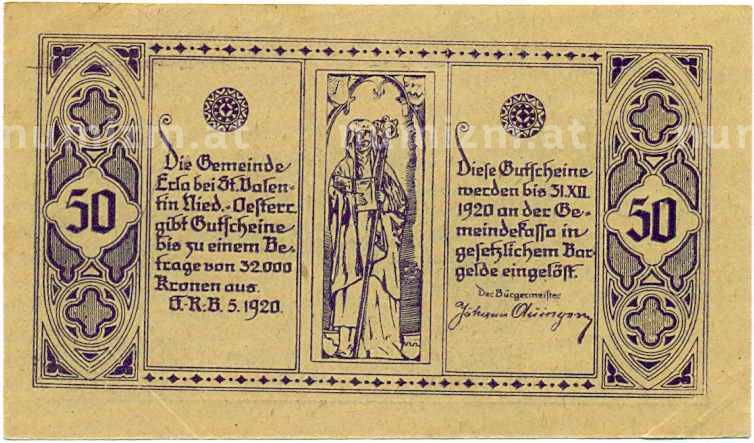 50
Die Gemeinde
Erla bei St. Valen-
tin Nied.-Oesterr.
gibt Gutscheine
bis zu einem Be-
trage von 32.000
Kronen aus.
G.-R.-B. 5. 1920.
Diese Gutscheine
werden bis 31.XII.
1920 an der Ge-
meindekassa in
gesetzlichem Bar-
gelde eingelöst.
Der Bürgermeister
Johann
50
numizm.at
numizm.at
num